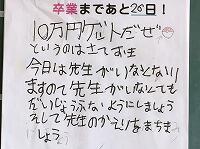 卒業まであと25日!
10万円ゲットだぜ
というのはさておき
今日は先生がいなくない
ますので先生がいなくても
だいじょうぶなようにしましょう
そして先生のかえりをまちま
しょう